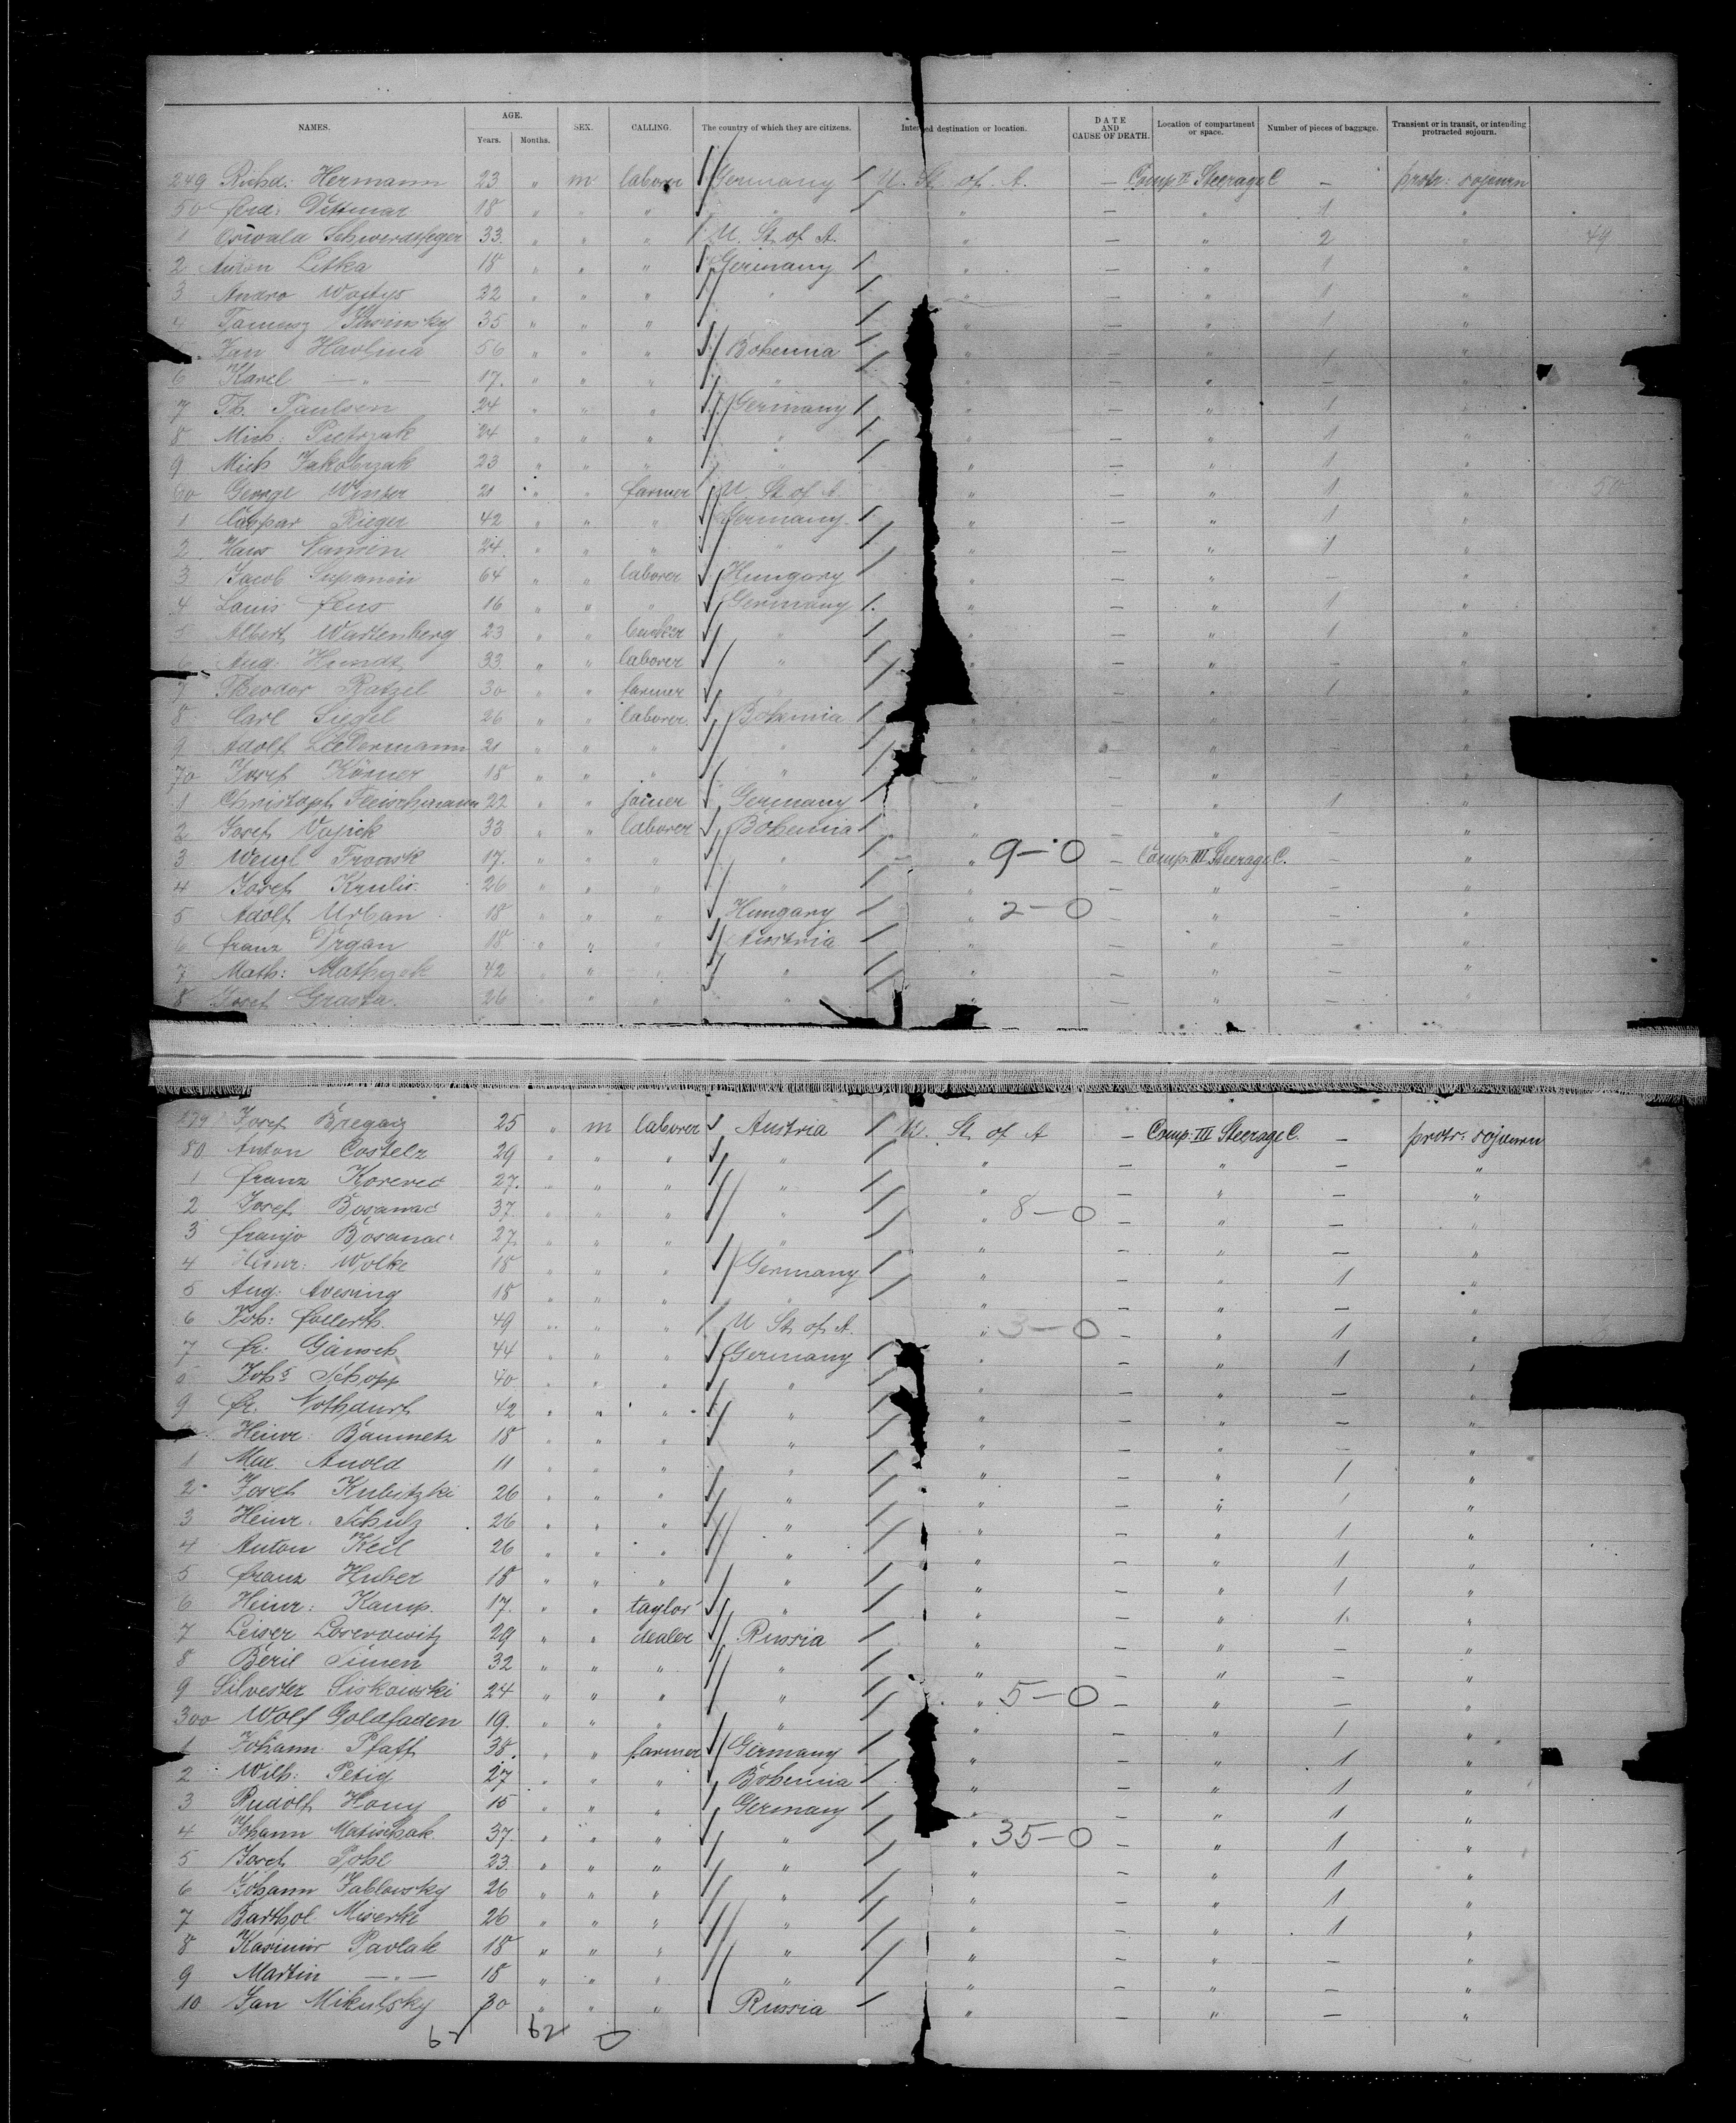 NAMES. AGE. Years. Months. SEX. CALLING. The country of which they are citizens. Intended destination or location. DATE AND CAUSE OF DEATH. Location of compartment or space. Number of pieces of baggage. Transient or in transit, or intending protracted sojourn.
249 Richd: Hermann 23 " m laborer Germany U. St. of A. — Comp. II Steerage C — protr: sojourn
50 Ferd: Dittmar 18 " " " " " — " 1 "
1 Oswald Schwerdtfeger 33 " " " U. St. of A. " — " 2 " 49
2 Anton Litka 18 " " " Germany " — " 1 "
3 Andro 22 " " " " " — " 1 "
4 35 " " " " " — " 1 "
Jan Havlina 56 " " " Bohemia " — " 1 "
6 Karel — " — 17 " " " " " — " — "
7 Th. Paulsen 24 " " " Germany " — " 1 "
8 Mich: Pietrzak 24 " " " " " — " 1 "
9 Mich Jakobczak 23 " " " " " — " 1 "
60 George Winter 21 " " farmer U. St. of A. " — " 1 " 50
1 Caspar Rieger 42 " " " Germany " — " 1 "
2 Hans 24 " " " " " — " 1 "
3 Jacob 64 " " laborer Hungary " — " — "
4 Louis Fens 16 " " " Germany " — " 1 "
5 Albert Wartenberg 23 " " " " — " 1 "
6 Aug: Hundt 33 " " laborer " " — " — "
7 Theodor Ratzel 30 " " farmer " " — " 1 "
8 Carl Siegel 26 " " laborer Bohemia " — " "
9 Adolf Ledermann 21 " " " " " " "
70 Josef Körner 18 " " " " " — " "
1 Christoph Fleischmann 22 " " joiner Germany " — " 1 "
2 Josef Vojick 33 " " laborer Bohemia " — " "
3 Wenzl 17 " " " " " 9—0 — Comp: III Steerage C. — "
4 Josef Krulis 26 " " " " " — " — "
5 Adolf Urban 18 " " " Hungary " 2—0 " — "
6 Franz Vrgan 18 " " " Austria " — " — "
7 Math: 42 " " " " " — " — "
8 Josef Grasta 26 " " " " — " — "
279 Josef Bregaig 25 " m laborer Austria U. St. of A — Comp: III Steerage C. — protr: sojourn
80 Anton Costelz 29 " " " " " — " — "
1 Franz Korevec 27 " " " " " — " — "
2 Josef Bosanac 37 " " " " " 8—0 — " — "
3 Franjo Bosanac 27 " " " " " — " — "
4 Heinr: Wolke 18 " " " Germany " — " 1 "
5 Aug: Avesing 18 " " " " " — " — "
6 Joh: 49 " " " U St. of A. " 3—0 — " 1 "
7 Fr: Gänsch 44 " " " Germany " — " 1 "
8 Johs Schopp 40 " " " " " — " — "
9 Fr: Nothdurf 42 " " " " " — " — "
Heinr: Baumetz 18 " " " " " — " — "
1 Max 11 " " " " " — " 1 "
2 Josef Kubitzki 26 " " " " " — " 1 "
3 Heinr: Schulz 26 " " " " " — " 1 "
4 Anton Keil 26 " " " " " — " 1 "
5 Franz Huber 18 " " " " " — " 1 "
6 Heinr: Kamp. 17 " " taylor " " — " 1 "
7 Leiser 29 " " dealer Russia " — " — "
8 Beril Simen 32 " " " " " — " — "
9 Silvester Siskowski 24 " " " " " 5—0 — " — "
300 Wolf Goldfaden 19 " " " " " — " 1 "
1 Johann Pfaff 38 " " farmer Germany " — " 1 "
2 Wilh: Petig 27 " " " Bohemia " — " 1 "
3 Rudolf Hony 15 " " " Germany " — " 1 "
4 Johann Matischak 37 " " " " " 35—0 — " 1 "
5 Josef Pohl 23 " " " " " — " 1 "
6 Johann Jablowsky 26 " " " " " — " 1 "
7 Barthol. Miserke 26 " " " " " — " 1 "
8 Kasimir Pavlak 18 " " " " " — " — "
9 Martin — " — 18 " " " " " — " — "
10 Jan Mikulsky 30 " " " Russia " — " — "
62 62 0